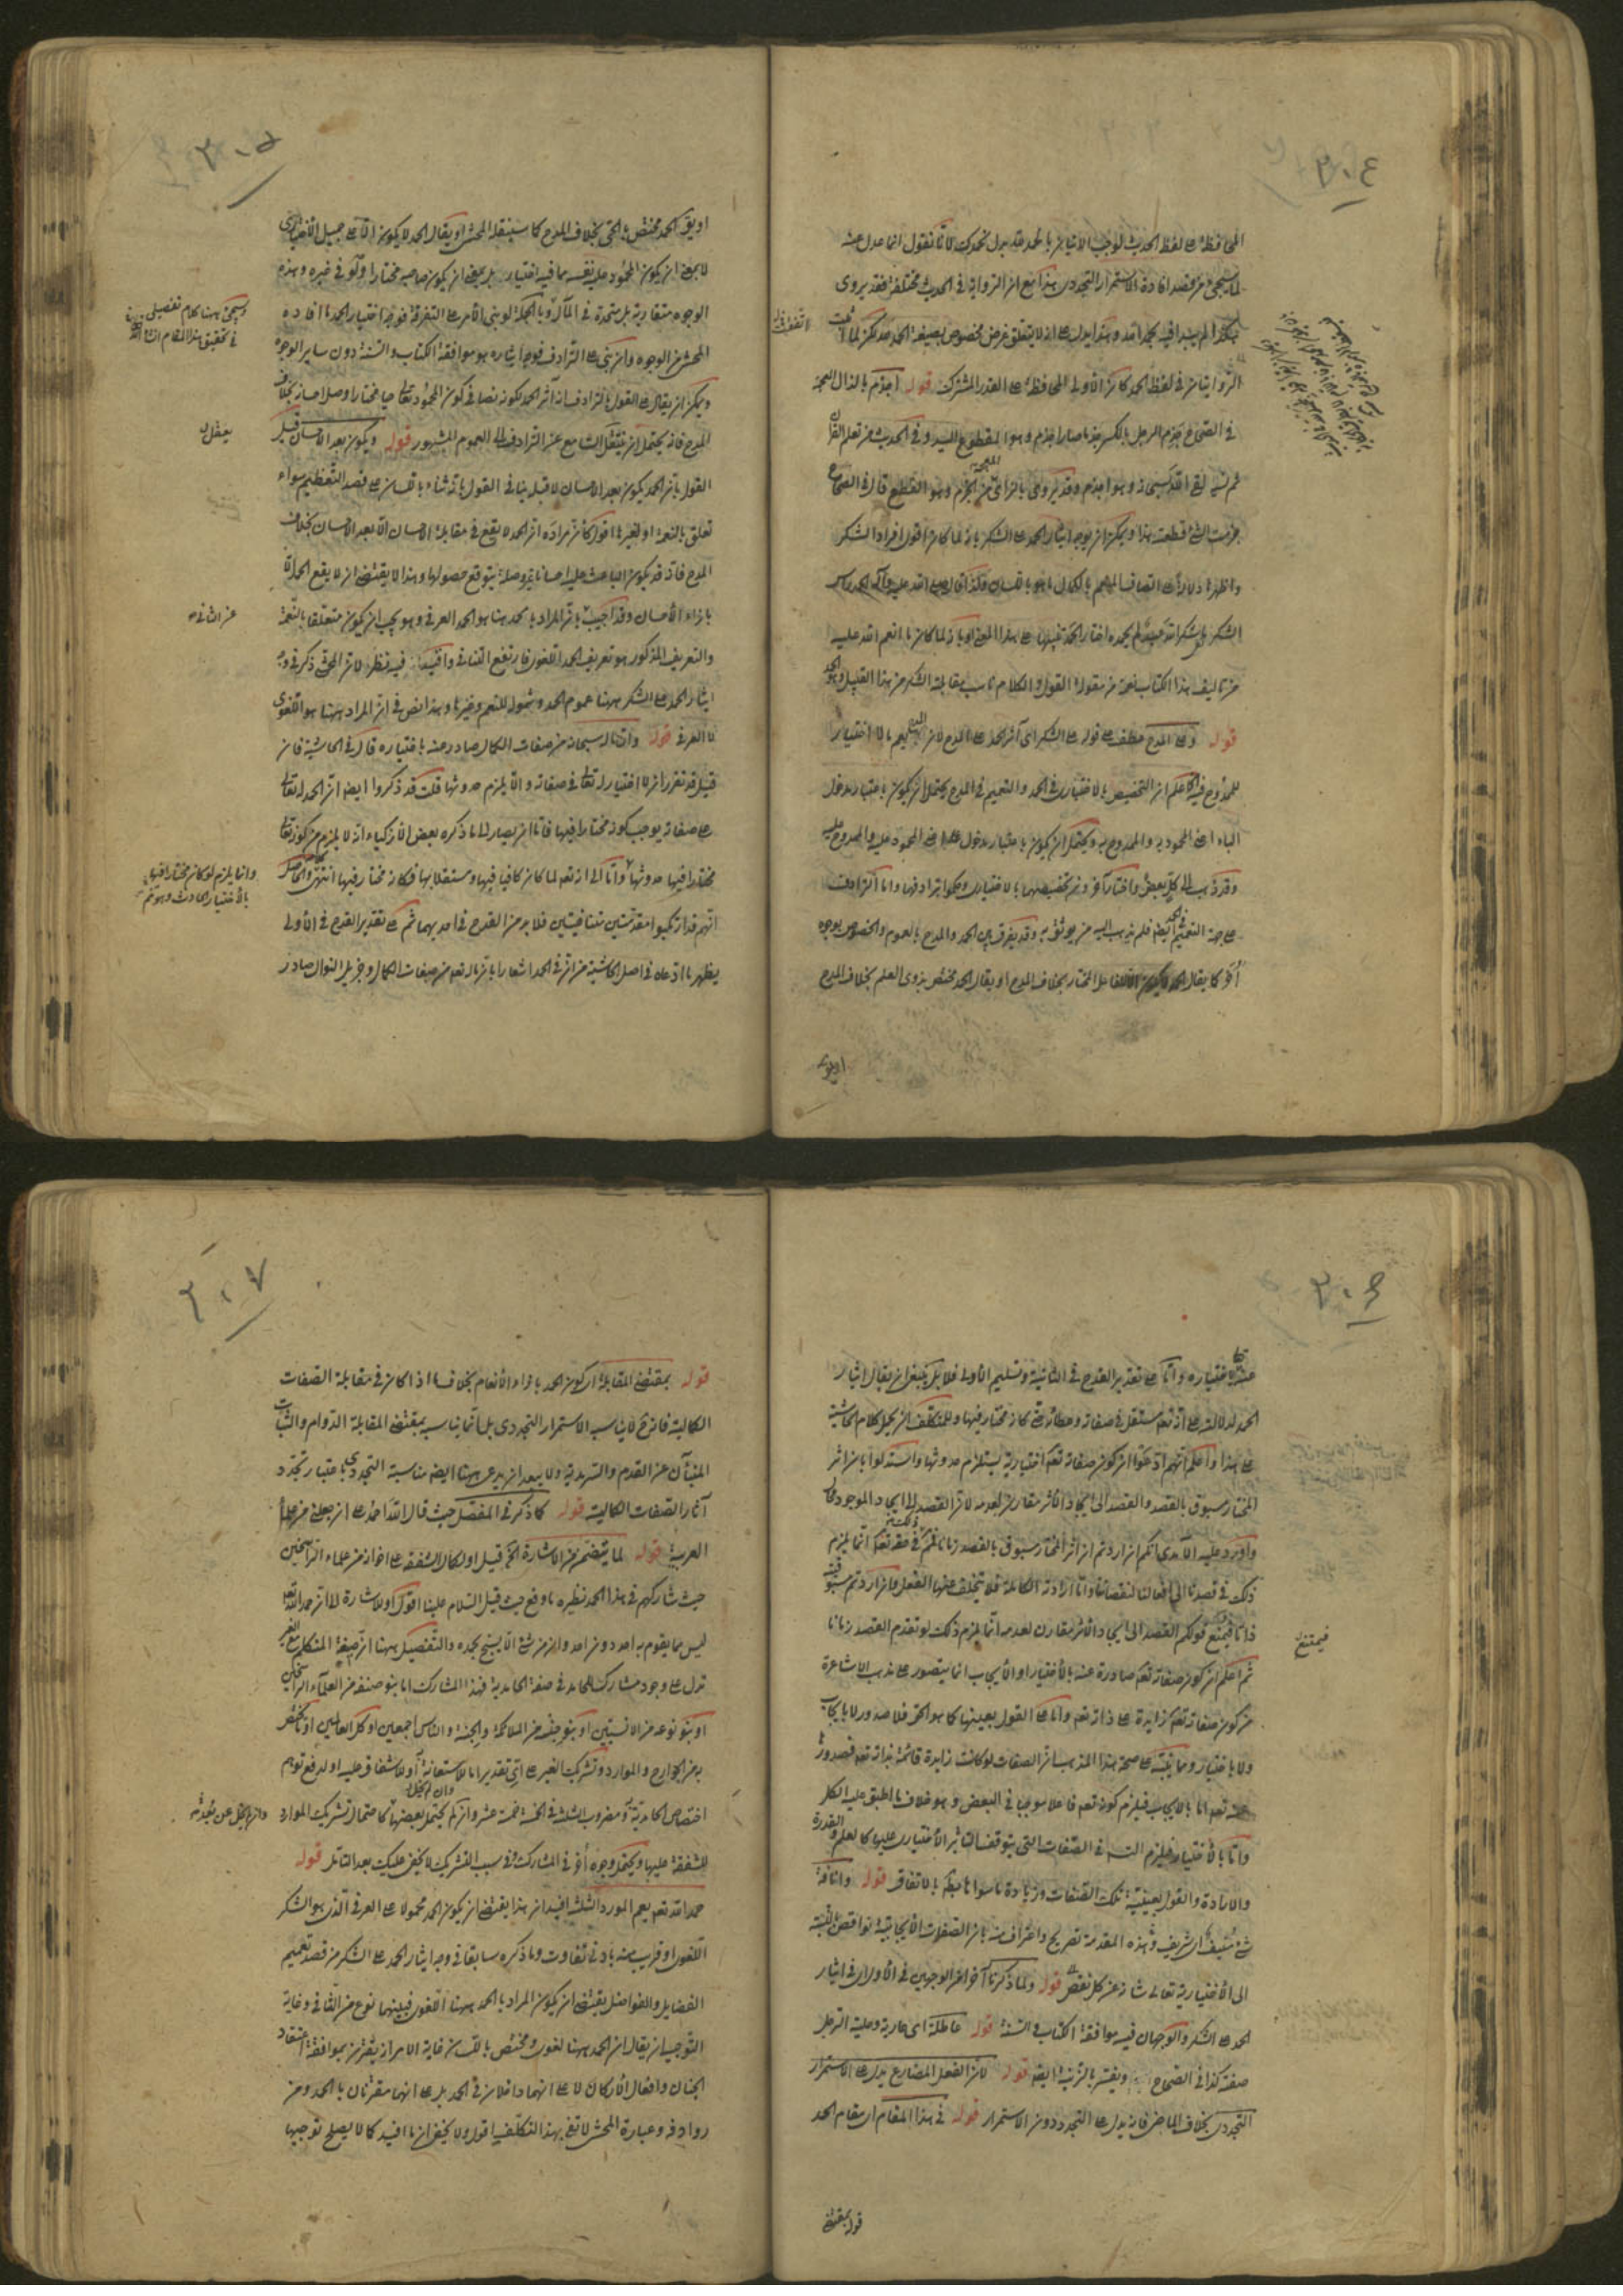 ٣٠٤
المحافظة على لفظ الحديث لوجب الاتيان بالحمد لله بدل نحمدك لانا نقول انما عدل عنه
لما سيجئ من قصد افادة الاستمرار التجددى هذا مع ان الروايات فى الحديث مختلفة فقد يروى
الروايتان فى لفظ الحمد كان الاولى المحافظة على القدر المشترك قوله اجذم بالذال المعجمة
فى الصحاح جذم الرجل بالكسر جذما صار اجذم وهو المقطوع اليد وفى الحديث من تعلم القرآن
ثم نسيه لقى الله سبحانه وهو اجذم وقد يروى بالزاى المعجمة من الجزم وهو القطع قال فى الصحاح
جزمت الشئ قطعته هذا ويمكن ان يوجه ايثار الحمد على الشكر بانه لما كان اقوى افراد الشكر
الشكر ما شكر الله عبد لم يحمده اختار الحمد تنبيها على هذا المعنى او بانه لما كان ما انعم الله عليه
من تاليف هذا الكتاب نعمة من مقولة القول والكلام ناسب مقابلة الشكر من هذا القبيل وهو الحمد
قوله وعلى المدح عطف على قوله على الشكر اى آثر الحمد على المدح
للممدوح فيه اعلم ان التخصيص بالاختيارى فى الحمد والتعميم فى المدح يحتمل ان يكون باعتبار مدخول
الباء اعنى المحمود به والممدوح به ويحتمل ان يكون باعتبار مدخول على اعنى المحمود عليه والممدوح عليه
وقد ذهب الى كل بعض واختار آخرون تخصيصهما بالاختيارى وحكموا بترادفهما واما الترادف
على جهة التعميم ايضا فلم يذهب اليه من يوثق به وقد يفرق بين الحمد والمدح بالعموم والخصوص بوجوه
أخر كما يقال الحمد لا يكون الا للفاعل المختار بخلاف المدح او يقال الحمد مختص بذوى العلم بخلاف المدح
او يقال
٣٠٥
او يقال الحمد مختص بالحى بخلاف المدح كما سينقله المحشى او يقال الحمد لا يكون الا على جميل الاختيارى
لا بمعنى ان يكون المحمود عليه نفسه مما فيه اختيار بل بمعنى ان يكون صاحبه مختارا ولو فى غيره وهذه
الوجوه متقاربة بل متحدة فى المآل وبالجملة لو بنى الامر على التفرقة فوجه اختيار الحمد ما افاده
المحشى من الوجوه وان بنى على الترادف فوجه ايثاره هو موافقة الكتاب والسنة دون ساير الوجوه
ويمكن ان يقال على القول بالترادف انه آثر الحمد لكونه نصا فى كون المحمود تعالى حيا مختارا وصل احسانه بخلاف
المدح فانه يحتمل ان ينتقل السامع عن الترادف الى العموم المشهور قوله ويكون بعد الاحسان قيل
القول بان الحمد يكون بعد الاحسان لا قبله ينافى القول بانه ثناء باللسان على قصد التعظيم سواء
تعلق بالنعمة او بغيرها اقول كان مراده ان الحمد لا يقع فى مقابلة الاحسان الا بعد الاحسان بخلاف
المدح فانه قد يكون الباعث عليه احسانا بتوقع حصولها وهذا لا يقتضى ان لا يقع الحمد الا
بازاء الاحسان وقد اجيب بان المراد بالحمد ههنا هو الحمد العرفى وهو يجب ان يكون متعلقا بالنعمة
والتعريف المذكور هو تعريف الحمد اللغوى فارتفع التنافى وفيه نظر لان المحشى ذكر فى وجه
ايثار الحمد على الشكر ههنا عموم الحمد وشموله للنعم وغيرها وهذا نص فى ان المراد ههنا هو اللغوى
لا العرفى قوله وان ماله سبحانه من صفات الكمال صادر عنه باختياره قال فى الحاشية فان
قيل قد تقرر ان لا اختيار له تعالى فى صفاته والا يلزم حدوثها قلت قد ذكروا ايضا ان الحمد له تعالى
على صفاته يوجب كونه مختارا فيها فاما ان يصار الى ما ذكره بعض الاذكياء انه لا يلزم من كونه تعالى
مختارا فيها حدوثها واما الى انه تعالى لما كان كافيا فيها ومستقلا بها فكانه مختار فيها انتهى والحاصل
انهم قد ارتكبوا مقدمتين متنافيتين فلا بد من القدح فى احديهما ثم على تقدير القدح فى الاولى
يظهر ما ادعاه فى اصل الحاشية من ان فى الحمد اشعارا بان ماله تعالى من صفات الكمال وجزيل النوال صادر
وسيجئ ههنا كلام تفصيلى
فى تحقيق هذا المقام ان شاء الله
وانما يلزم لو كان مختارا فيها
بالاختيار الحادث وهو ثم
٣٠٦
عنه تعالى باختياره واما على تقدير القدح فى الثانية وتسليم الاولى فلا بل ينبغى ان يقال ايثار
الحمد لدلالته على انه تعالى مستقل فى صفاته وعطائه حتى كانه مختار فيها وللمتكلف ان يحمل كلام الحاشية
على هذا واعلم انهم ادعوا ان كون صفاته تعالى اختيارية يستلزم حدوثها واستدلوا بان اثر
المختار مسبوق بالقصد والقصد الى ايجاد الاثر مقارن لعدمه لان القصد الى ايجاد الموجود محال
واورد عليه الآمدى انكم ان اردتم ان اثر المختار مسبوق بالقصد زمانا فى حقه تعالى انما يلزم
ذلك فى قصدنا الى افعالنا لنقصانها واما ارادته الكاملة فلا يتخلف عنها الفعل وان اردتم سبقه
ذاتا فيمنع قولكم القصد الى ايجاد الاثر مقارن لعدمه انما يلزم ذلك لو تقدم القصد زمانا
ثم اعلم ان كون صفاته تعالى صادرة عنه بالاختيار او الايجاب انما يتصور على مذهب الاشاعرة
من كون صفاته تعالى زايدة على ذاته تعالى واما على القول بعينها كما هو الحق فلا صدور لا بايجاب
ولا باختيار ومما ينبه على صحة هذا المذهب ان الصفات لو كانت زايدة قائمة بذاته تعالى فصدورها
عنه تعالى اما بالايجاب فيلزم كونه تعالى فاعلا موجبا فى البعض وهو خلاف ما اطبق عليه الكل
واما بالاختيار فيلزم التسلسل فى الصفات التى يتوقف التاثير الاختيارى عليها كالعلم والقدرة
والارادة والقول بعينية تلك الصفات وزيادة ما سواها باطل بالاتفاق قوله وانافة
الى الاختيارية تعالى شانه عن كل نقص قوله ولما ذكرنا آخرا من الوجهين فى الاولى فى ايثار
الحمد على الشكر والوجهان فيه موافقة الكتاب والسنة قوله عاطلة اى عارية وحلية الرجل
صفته كذا فى الصحاح ويفسر بالزينة ايضا قوله لان الفعل المضارع يدل على الاستمرار
التجددى بخلاف الماضى فانه يدل على التجدد دون الاستمرار قوله فى هذا المقام اى مقام الحمد
فيمتنع
قوله بمقتضى
٣٠٧
قوله بمقتضى المقابلة اى كون الحمد بازاء الانعام بخلاف ما اذا كان فى مقابلة الصفات
الكمالية فانه ح لا يناسبه الاستمرار التجددى بل انما يناسبه بمقتضى المقابلة الدوام والثبات
المنبأن عن القدم والسرمدية ولا يبعد ان يدعى ههنا ايضا مناسبة التجددى باعتبار تجدد
آثار الصفات الكمالية قوله كما ذكر فى المفصل حيث قال الله احمد على ان جعلنى من علماء
العربية قوله لما يتضمن من الاشارة الخ قيل او لكمال الشفقة على اخوانه من علماء الراسخين
حيث شاركهم فى هذا الحمد نظيره ما وقع حيث قيل السلام علينا اقول او للاشارة الى ان حمد الله تعالى
ليس مما يقوم به احد دون احد وان من شئ الا يسبح بحمده والتفصيل ههنا ان صيغة المتكلم مع الغير
تدل على وجود مشارك للحامد فى صفة الحامدية فهذا المشارك اما بنو صنفه من العلماء الراسخين
او بنو نوعه من الانسيين او بنو جنسه من الملائكة والجنة والناس اجمعين او كل العالمين
به من الجوارح والموارد وتشريك الغير على اى تقدير اما للاستعانة او للاشفاق عليه او لدفع توهم
اختصاص الحامدية ومضروب الثلثة فى الخمسة خمسة عشر وان لم يحتمل بعضها كاحتمال تشريك الموارد
للشفقة عليها ويحتمل وجوه أخر فى المشارك وفى سبب التشريك لا يخفى عليك بعد التامل قوله
حمد الله تعالى يعم المورد الثلثة افيد ان هذا يقتضى ان يكون الحمد محمولا على العرفى الذى هو الشكر
اللغوى او قريب منه بادنى تفاوت وما ذكره سابقا فى وجه ايثار الحمد على الشكر من قصد تعميم
الفضايل والفواضل يقتضى ان يكون المراد بالحمد ههنا اللغوى فبينهما نوع من التنافى وغاية
التوجيه ان يقال ان الحمد ههنا لغوى ومختص باللسان غاية الامر انه يقترن بموافقة اعتقاد
الجنان وافعال الاركان لا على انهما داخلان فى الحمد بل على انهما مقترنان بالحمد ومن
روادفه وعبارة المحشى لا تفى بهذا التكلف اقول ولا يخفى ان ما افيد كما لا يصلح توجيها